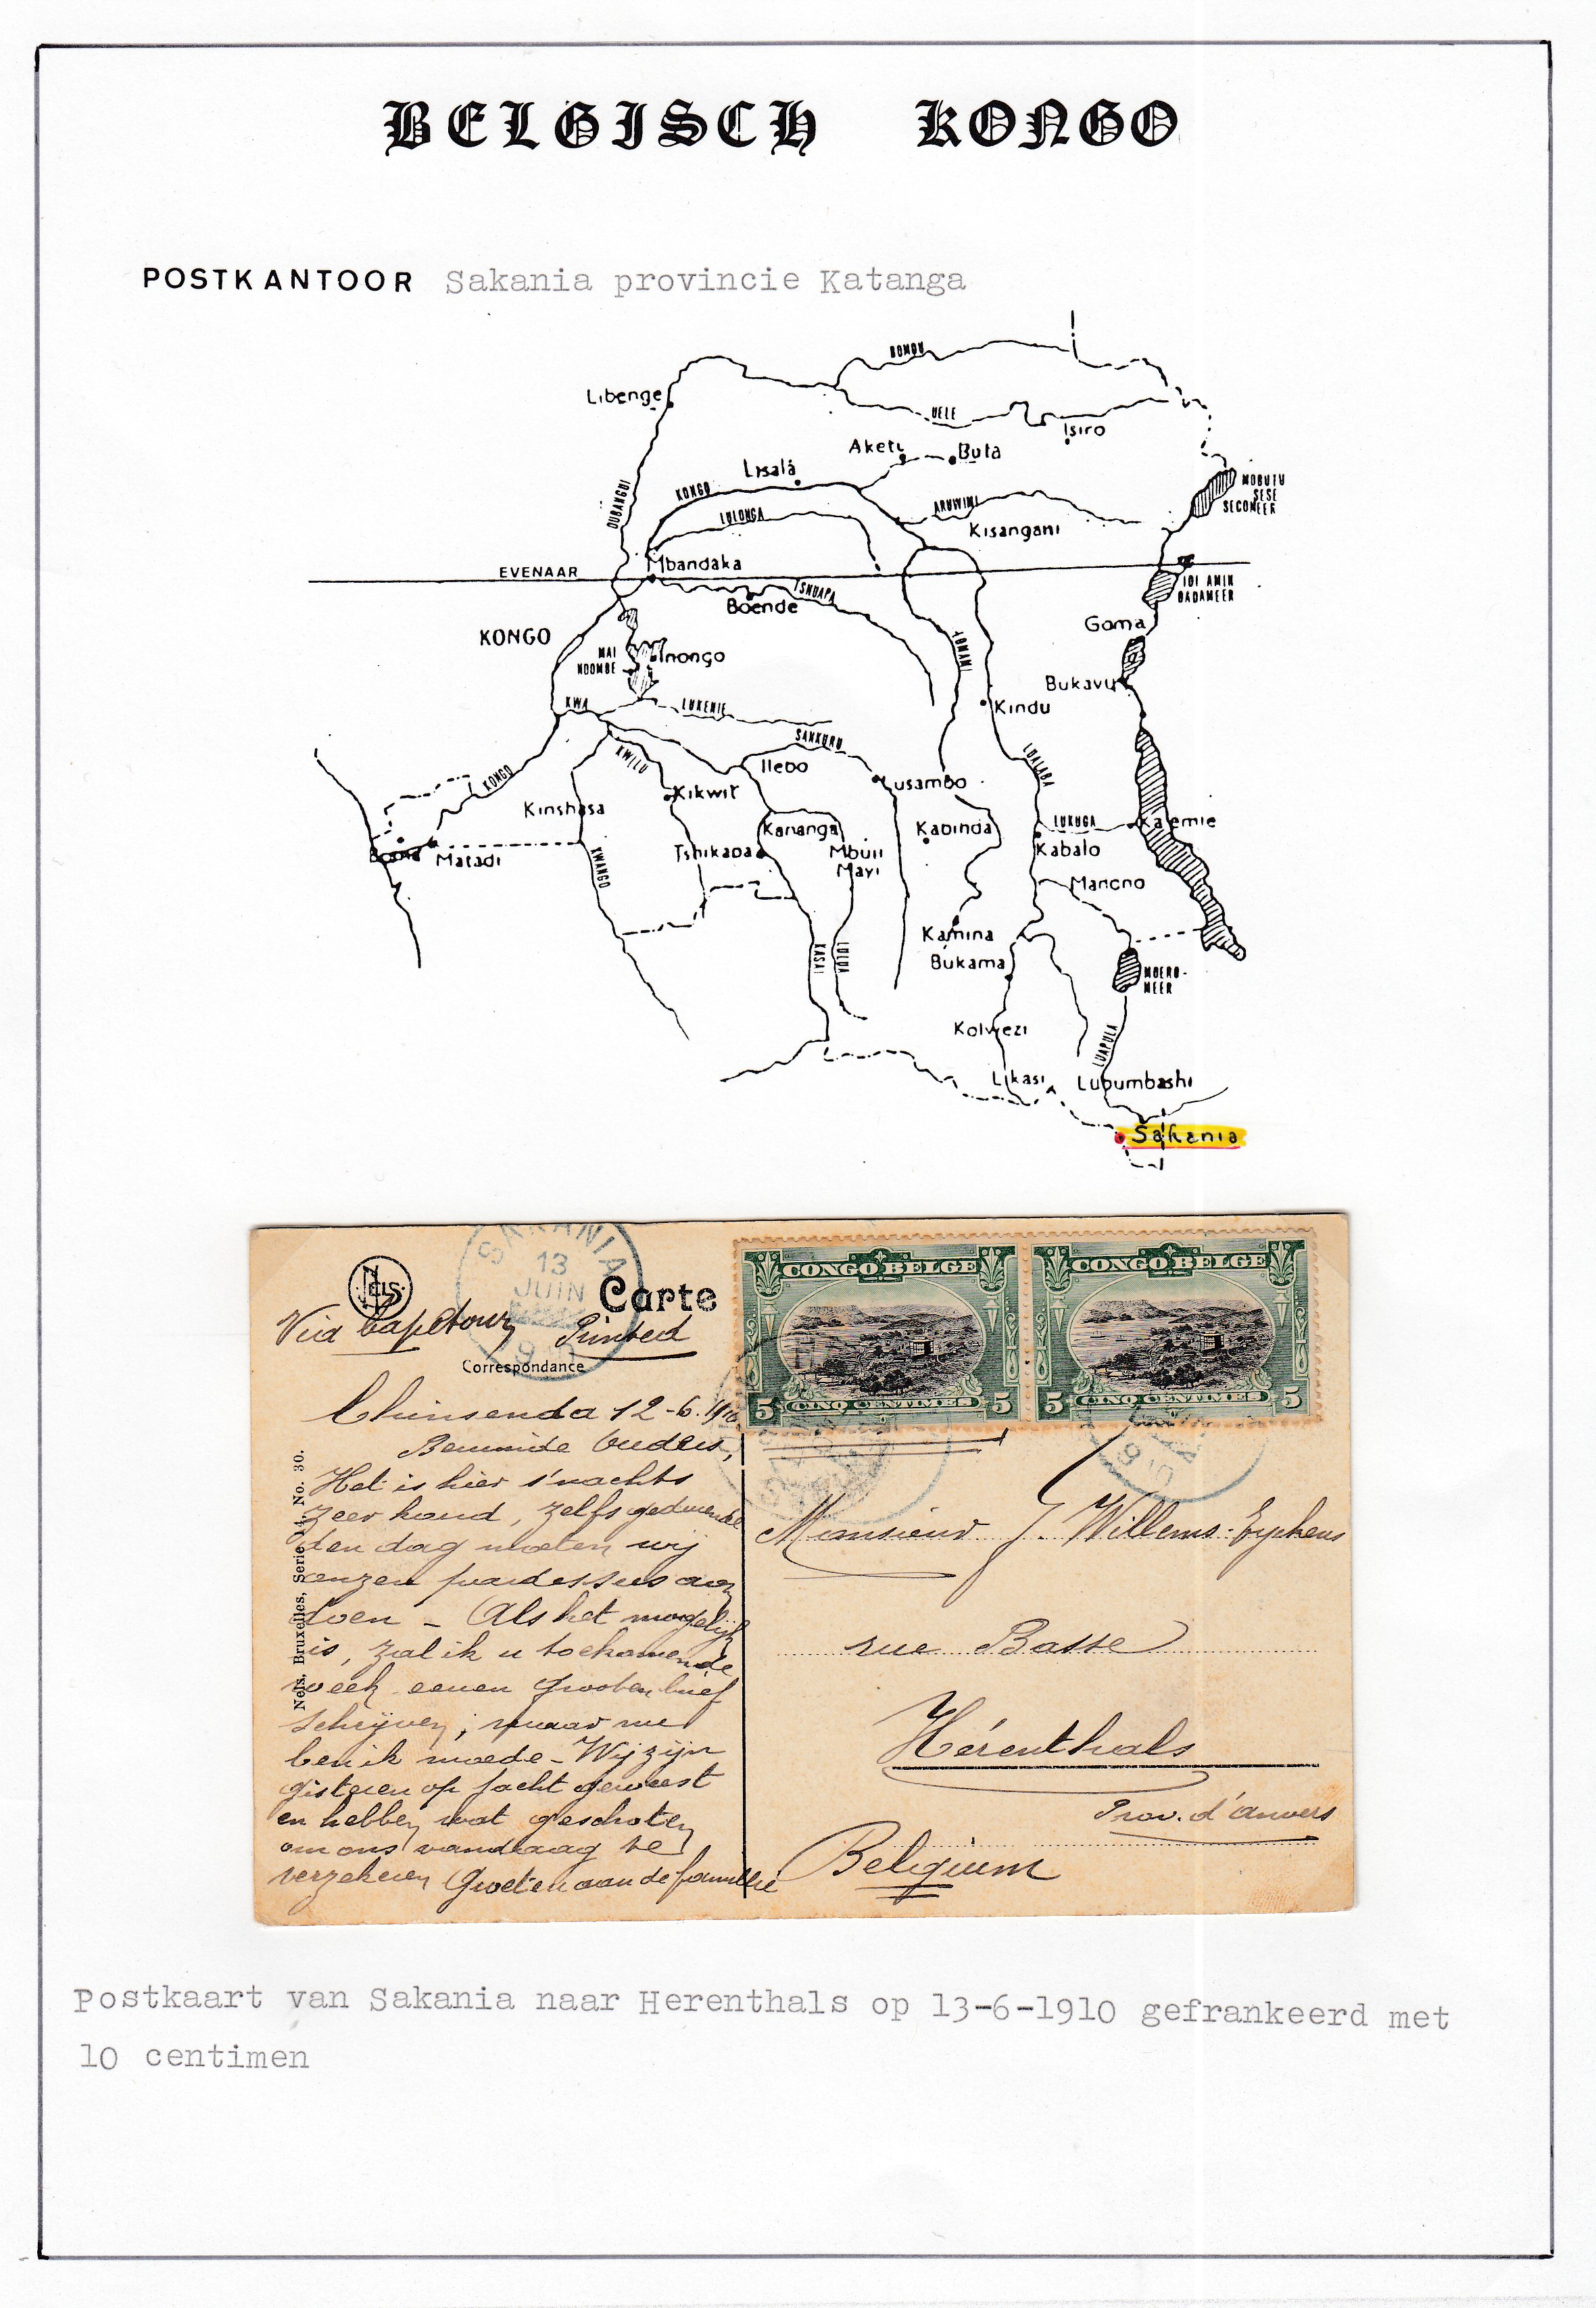 BELGISCH KONGO
POSTKANTOOR Sakania provincie Katanga
BOMOU
Libenge
UELE
Isiro
Aketi
Buta
Lisala
MOBUTU
SESE
SECOMEER
OUBANGUI
KONGO
LULONGA
ARUWIMI
Kisangani
Mbandaka
EVENAAR
TSHUAPA
IDI AMIN
DADAMEER
Boende
Goma
KONGO
LOMAMI
MAI
NDOMBE
Inongo
Bukavu
KWA
LUKENIE
Kindu
SANKURU
KWILU
Ilebo
LUALABA
KONGO
Lusambo
Kikwit
Kinshasa
Kananga
Kabinda
LUKUGA
Kalemie
Boma
Matadi
KWANGO
Tshikapa
Mbuji
Mayi
Kabalo
Manono
Kamina
KASAI
LULUA
Bukama
MOERO-
MEER
Kolwezi
LUAPULA
Likasi
Lubumbashi
Sakania
SAKANIA
13
JUIN
NELS
Carte
CONGO BELGE
CONGO BELGE
Via Capetown Printed
Correspondance
5 CINQ CENTIMES 5
5 CINQ CENTIMES 5
Chinsenda 12-6.1910
Beminde Ouders,
Het is hier s'nachts
zeer koud, zelfs gedurende
den dag moeten wij
onzen pardessus aan
doen - Als het mogelijk
is, zal ik u toekomende
week eenen grooten brief
schrijven; maar nu
ben ik moede - Wij zijn
gisteren op jacht geweest
en hebben wat geschoten
om ons vandaag te
verzekeren Groeten aan de familie
Nels, Bruxelles, Serie 14, No. 30.
Monsieur J. Willems-Eyckens
rue Basse
Hérenthals
Prov. d'Anvers
Belgium
Postkaart van Sakania naar Herenthals op 13-6-1910 gefrankeerd met
10 centimen